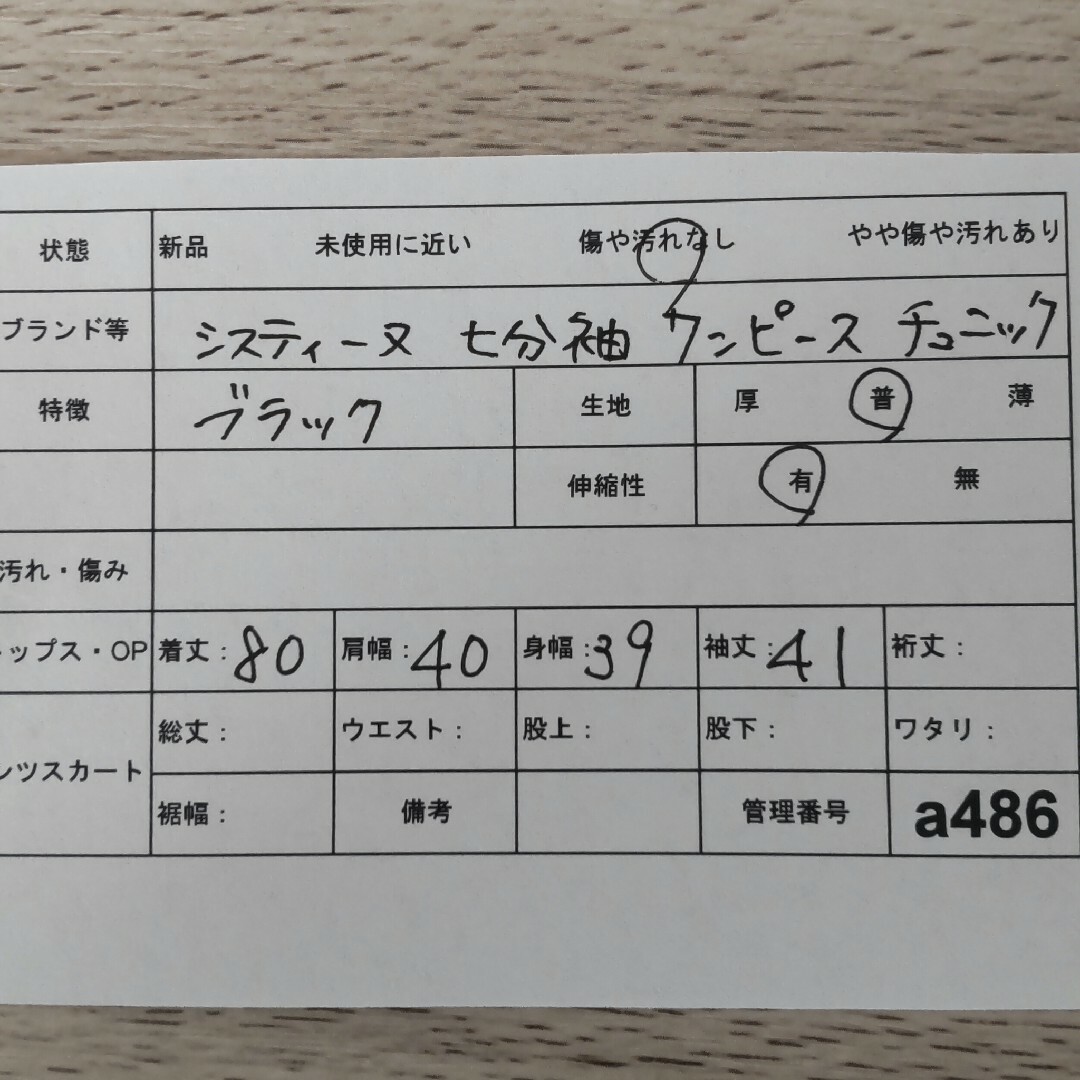 状態 新品 未使用に近い 傷や汚れなし やや傷や汚れあり
ブランド等 システィーヌ 七分袖 ワンピース チュニック
特徴 ブラック 生地 厚 普 薄
伸縮性 有 無
汚れ・傷み
ップス・OP 着丈：80 肩幅：40 身幅：39 袖丈：41 裄丈：
ンツスカート 総丈： ウエスト： 股上： 股下： ワタリ：
裾幅： 備考 管理番号 a486